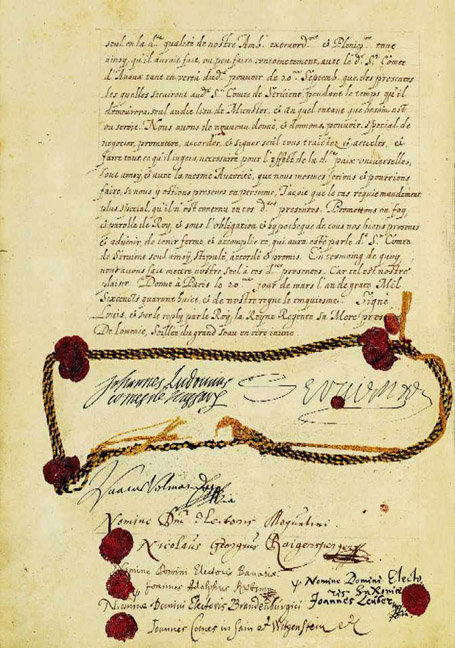 seul en la d.te qualité de nostre Amb.r extraord.re & Plenip.re tout
ainsy, qu'il auroit fait, ou peu faire conjointement, avec le d. S.r Comte
d'Avaux tant en vertu dud. pouvoir de 20.me Septemb. que des presentes
lesquelles serviront aud. S.r Comte de Servient, pendant le temps qu'il
demeurera seul audit lieu de Munster, & au quel entant que besoin est
ou seroit. Nous avons de nouveau donné, & donnons pouvoir special de
negocier, promettre, accorder, & signer seul tous traictez & articles, &
faire tout ce qu'il jugera necessaire pour l'effet de la d.te paix universelle,
tout ainsy & avec la mesme Autorité, que nous mesmes ferions & pourrions
faire, si nous y estions presens en personne, jaçoit que le cas requit mandement
plus special, qu'il n'est contenu en ces d.tes presentes. Promettons en foy
& parolle de Roy, & sous l'obligation & hypotheque de tous nos biens presens
& advenir, de tenir ferme, & accomplir ce, qui aura esté par le d. S.r Comte
de Servient seul ainsy, stipulé, accordé & promis. En tesmoing de quoy
nous avons fait mettre nostre seel à ces d.tes presentes. Car tel est nostre
plaisir. Donné à Paris le 20.me jour de mars l'an de grace Mil
Six cents quarante huict, & de nostre regne le cinquiesme. Signé
Louis, & sur le reply par le Roy, la Royne Regente sa Mere presente
De Lomenie, Seillée du grand seau en cire jaune
Johannes Ludovicus
comes de Nassau
Servien
Isaac Volmar
Nomine Dni Electoris Moguntini
Nicolaus Georgius Raigersperger
Nomine Domini Electoris Bavariae
Joannes Adolphus
Nomine Domini Electo
ris Saxoniae
Joannes Leuber
Nomine Domini Electoris Brandenburgici
Joannes Comes in Sain & Witgenstein